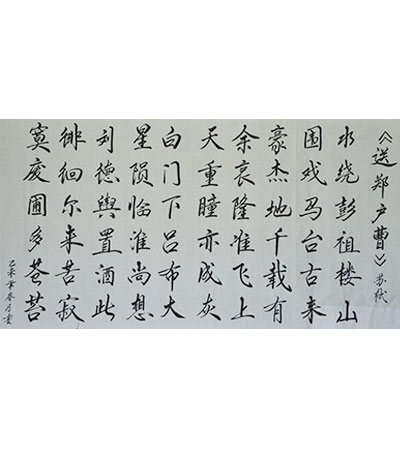 《送郑户曹》苏轼
水绕彭祖楼山
围戏马台古来
豪杰地千载有
余哀隆准飞上
天重瞳亦成灰
白门下吕布大
星陨临淮尚想
刘德舆置酒此
徘徊尔来苦寂
寞废圃多苍苔
乙未年月书